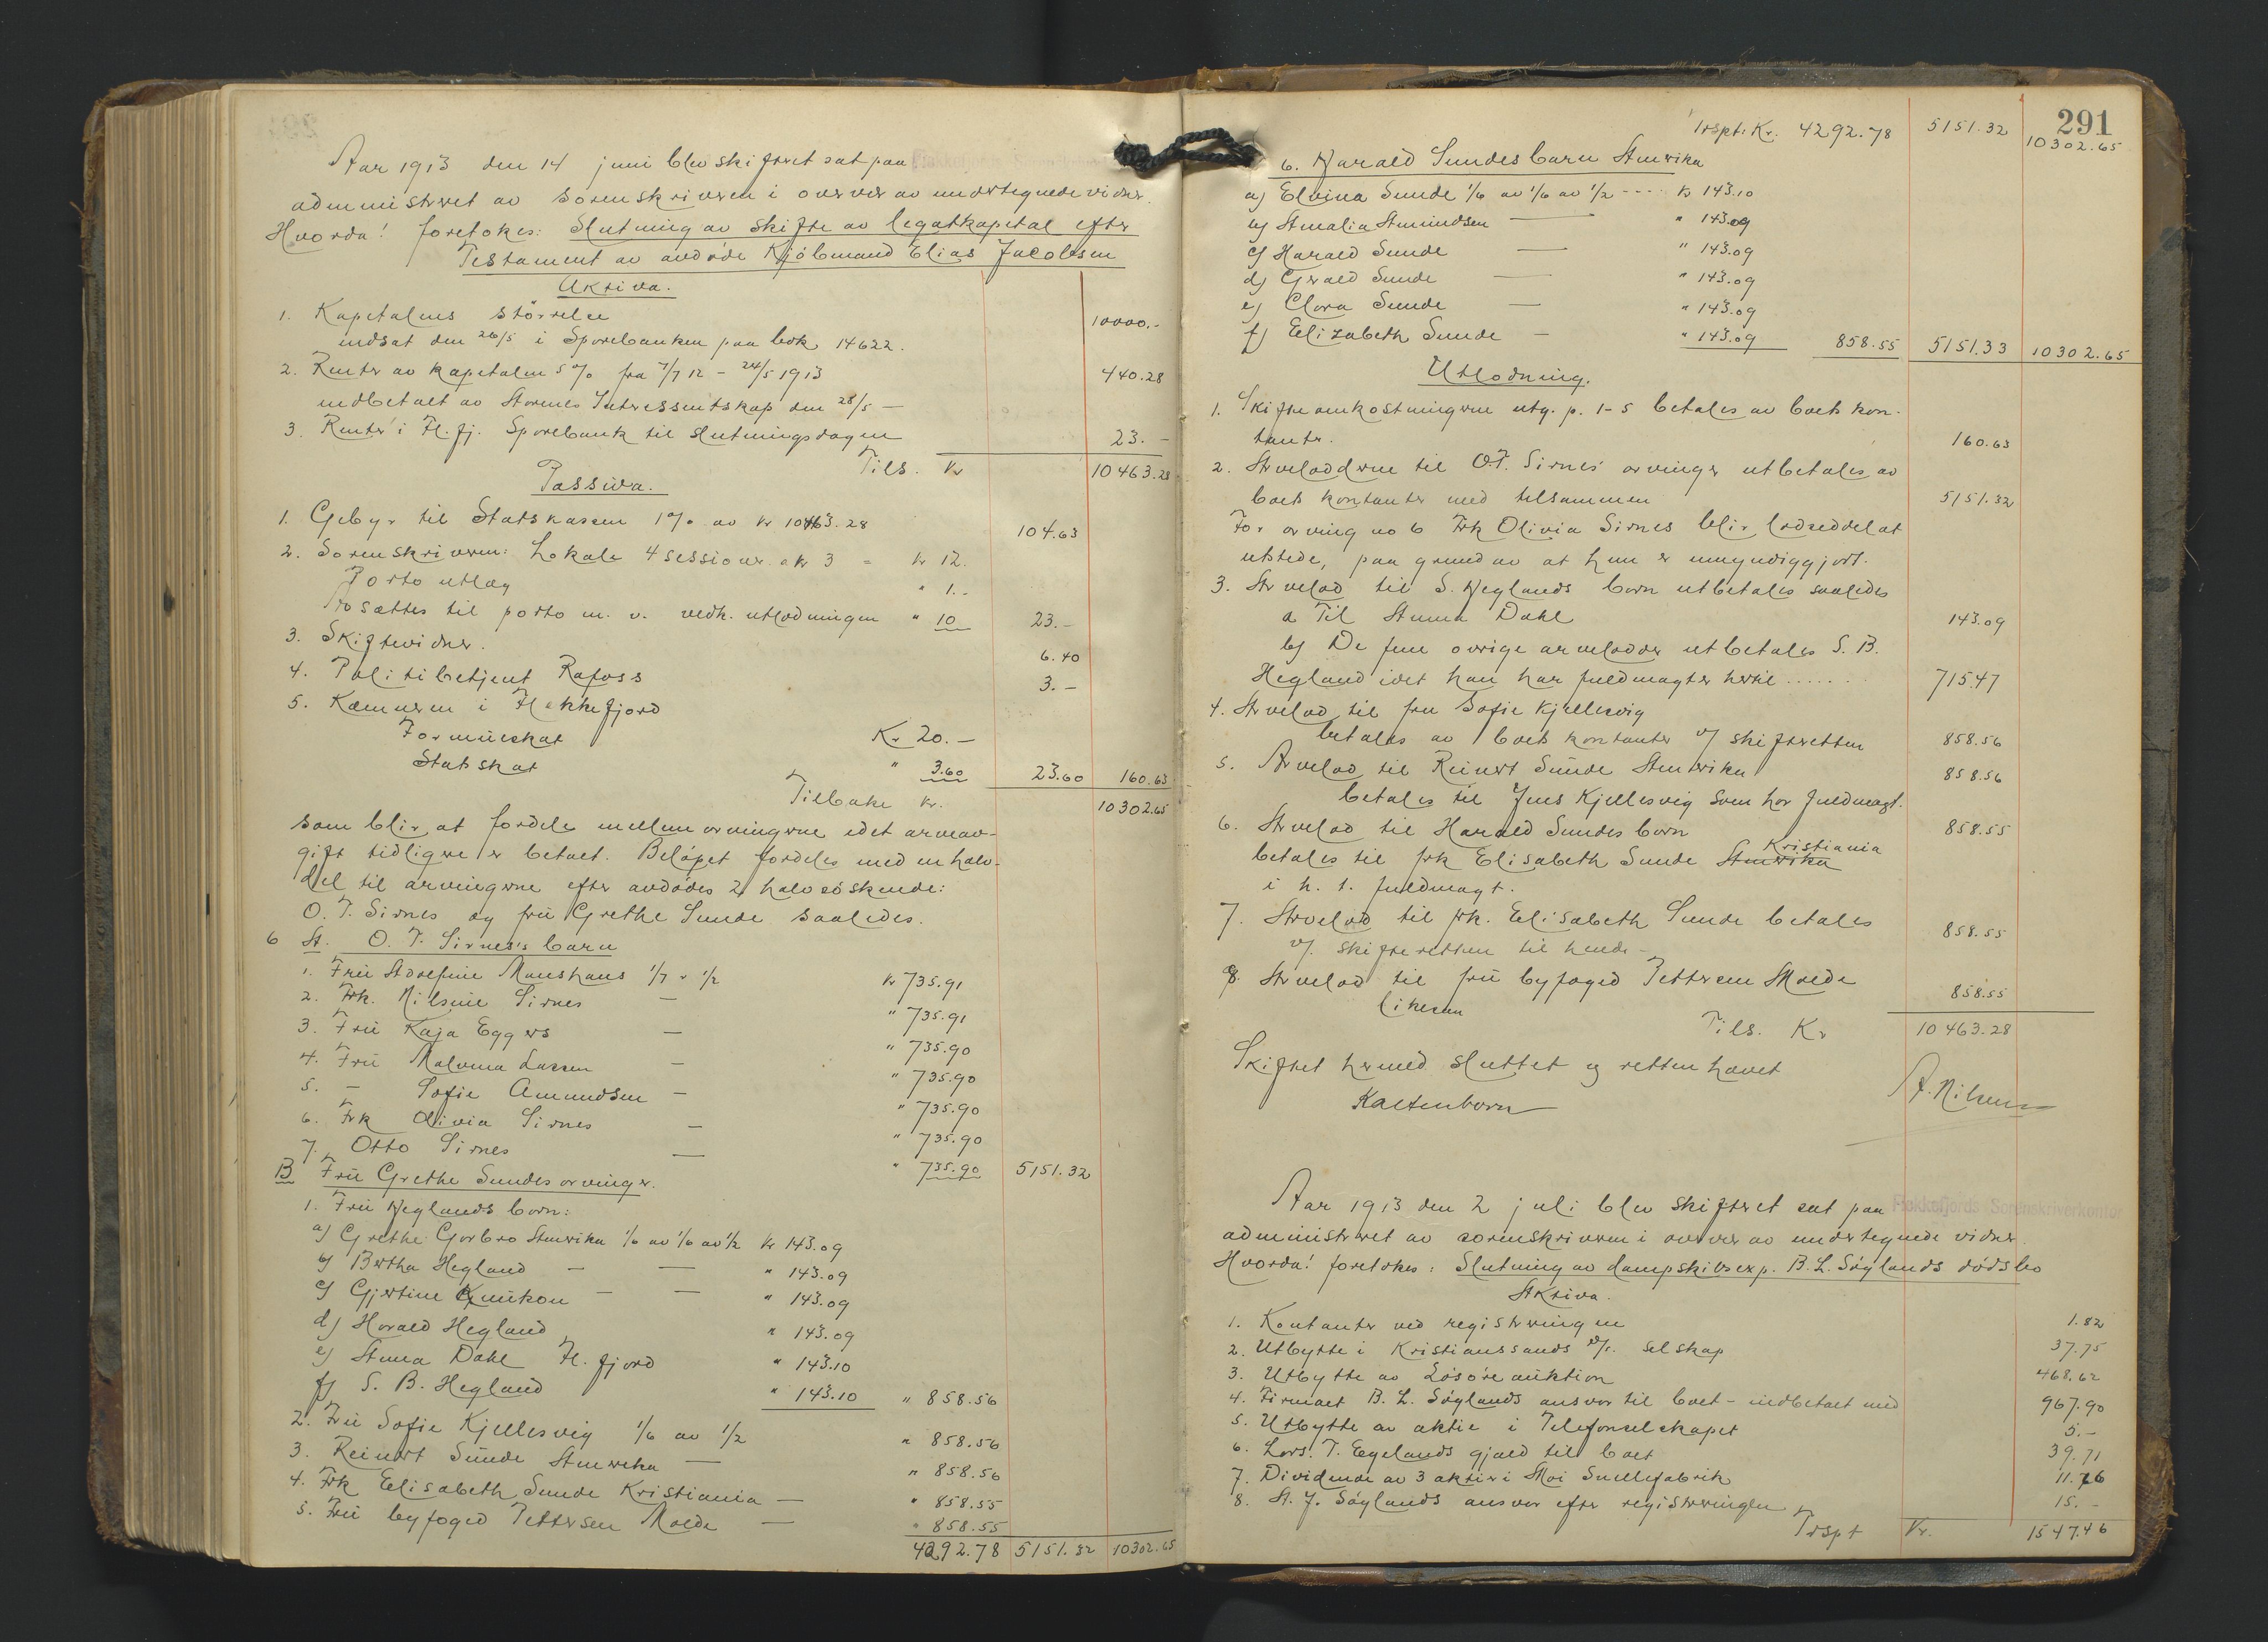 Aar 1913 den 14 juni blev skifteret sat paa Flekkefjords Sorenskriverkontor
administreret av sorenskriveren i overvær av undertegnede vidner.
Hvorda! foretokes: Slutning av skifte av legatkapital efter
Testament av avdøde Kjøbmand Elias Jacobsen
Aktiva.
1. Kapitalens størrelse 10000.-
indsat den 26/5 i Sparebanken paa bok 14622.
2. Renter av kapitalen 5% fra 7/7 12 - 24/5 1913 440.28
indbetalt av Arvenes Interessentskap den 28/5 —
3. Renter i Fl.fj. Sparebank til slutningsdagen 23.-
Tils. Kr 10463.28
Passiva.
1. Gebyr til Statskassen 1% av kr 10463.28 104.63
2. Sorenskriveren: Lokale 4 sessioner a kr 3 = kr 12.
Porto utlæg " 1.-
Avsættes til porto m. v. vedk. utlodningen " 10 23.-
3. Skiftevidner. 6.40
4. Politibetjent Rafoss 3.-
5. Kæmneren i Flekkefjord
Formueskat Kr 20.-
Statsskat " 3.60 23.60 160.63
Tilbake kr. 10302.65
som blir at fordele mellem arvingerne idet arveav-
gift tidligere er betalt. Beløpet fordeles med en halv-
del til arvingerne efter avdødes 2 halvsøskende:
O. T. Sirnes og fru Grethe Sunde saaledes.
6 A. O. T. Sirnes's barn
1. Fru Adolfine Maushaus 1/7 a 1/2 kr 735.91
2. Frk. Nilsine Sirnes — " 735.91
3. Fru Kaja Eggers — " 735.90
4. Fru Malvina Larsen — " 735.90
5. — Sofie Amundsen — " 735.90
6. Frk Olivia Sirnes — " 735.90
7. Otto Sirnes — " 735.90 5151.32
B Fru Grethe Sundes arvinger.
1. Fru Heglands born:
a) Grethe Garbro Amerika 1/6 av 1/6 av 1/2 kr 143.09
b) Bertha Hegland — — " 143.09
c) Gjertine Knukon — — " 143.09
d) Harald Hegland " 143.09
e) Anna Dahl Fl.fjord " 143.10
f) S. B. Hegland " 143.10 " 858.56
2. Fru Sofie Kjellesvig 1/6 av 1/2 " 858.56
3. Reinert Sunde Amerika — " 858.56
4. Frk Elisabeth Sunde Kristiania — " 858.55
5. Fru byfoged Pettersen Molde — " 858.55
4292.78 5151.32 10302.65
291
Trspt: Kr. 4292.78 5151.32 10302.65
6. Harald Sundes barn Amerika
a) Elvina Sunde 1/6 av 1/6 av 1/2 ---- kr 143.10
b) Amalia Amundsen — " 143.09
c) Harald Sunde — " 143.09
d) Gerald Sunde — " 143.09
e) Clara Sunde — " 143.09
f) Elizabeth Sunde — " 143.09 858.55 5151.33 10302.65
Utlodning.
1. Skifteomkostningerne utg. p. 1-5 betales av boets kon-
tanter. 160.63
2. Arveloddene til O.T. Sirnes' arvinger utbetales av
boets kontanter med tilsammen 5151.32
For arving no 6 Frk Olivia Sirnes blir lodseddel at
utstede, paa grund av at hun er umyndiggjort.
3. Arvelod til S. Heglands born utbetales saaledes
a Til Anna Dahl 143.09
b) De fem øvrige arvelodder utbetales S. B.
Hegland idet han har fuldmagter hertil ...... 715.47
4. Arvelod til fru Sofie Kjellesvig
betales av boets kontanter v/ skifteretten 858.56
5. Arvelod til Reinert Sunde Amerika 858.56
betales til Jens Kjellesvig som har fuldmagt.
6. Arvelod til Harald Sundes born 858.55
betales til frk Elisabeth Sunde Amerika Kristiania
i h. t. fuldmagt.
7. Arvelod til frk. Elisabeth Sunde betales
v/ skifteretten til hende - 858.55
8. Arvelod til fru byfoged Pettersen Molde
likesaa 858.55
Tils. Kr 10463.28
Skiftet hermed sluttet og retten hævet
Kaltenborn A. Nilsen
Aar 1913 den 2 juli blev skifteret sat paa Flekkefjords Sorenskriverkontor
administreret av sorenskriveren i overvær av undertegnede vidner.
Hvorda! foretokes: Slutning av dampskibsexp. B. L. Søylands dødsbo
Aktiva.
1. Kontanter ved registreringen 1.82
2. Utbytte i Kristianssands D/s. selskap 37.75
3. Utbytte av Løsøreauktion 468.62
4. Firmaet B. L. Søylands ansvar til boet - indbetalt med 967.90
5. Utbytte av aktie i Telefonselskapet 5.-
6. Lars T. Egelands gjæld til boet 39.71
7. Dividende av 3 aktier i Moi Snellefabrik 11.76
8. A. J. Søylands ansvar efter registreringen 15.-
Trspt Kr. 1547.46